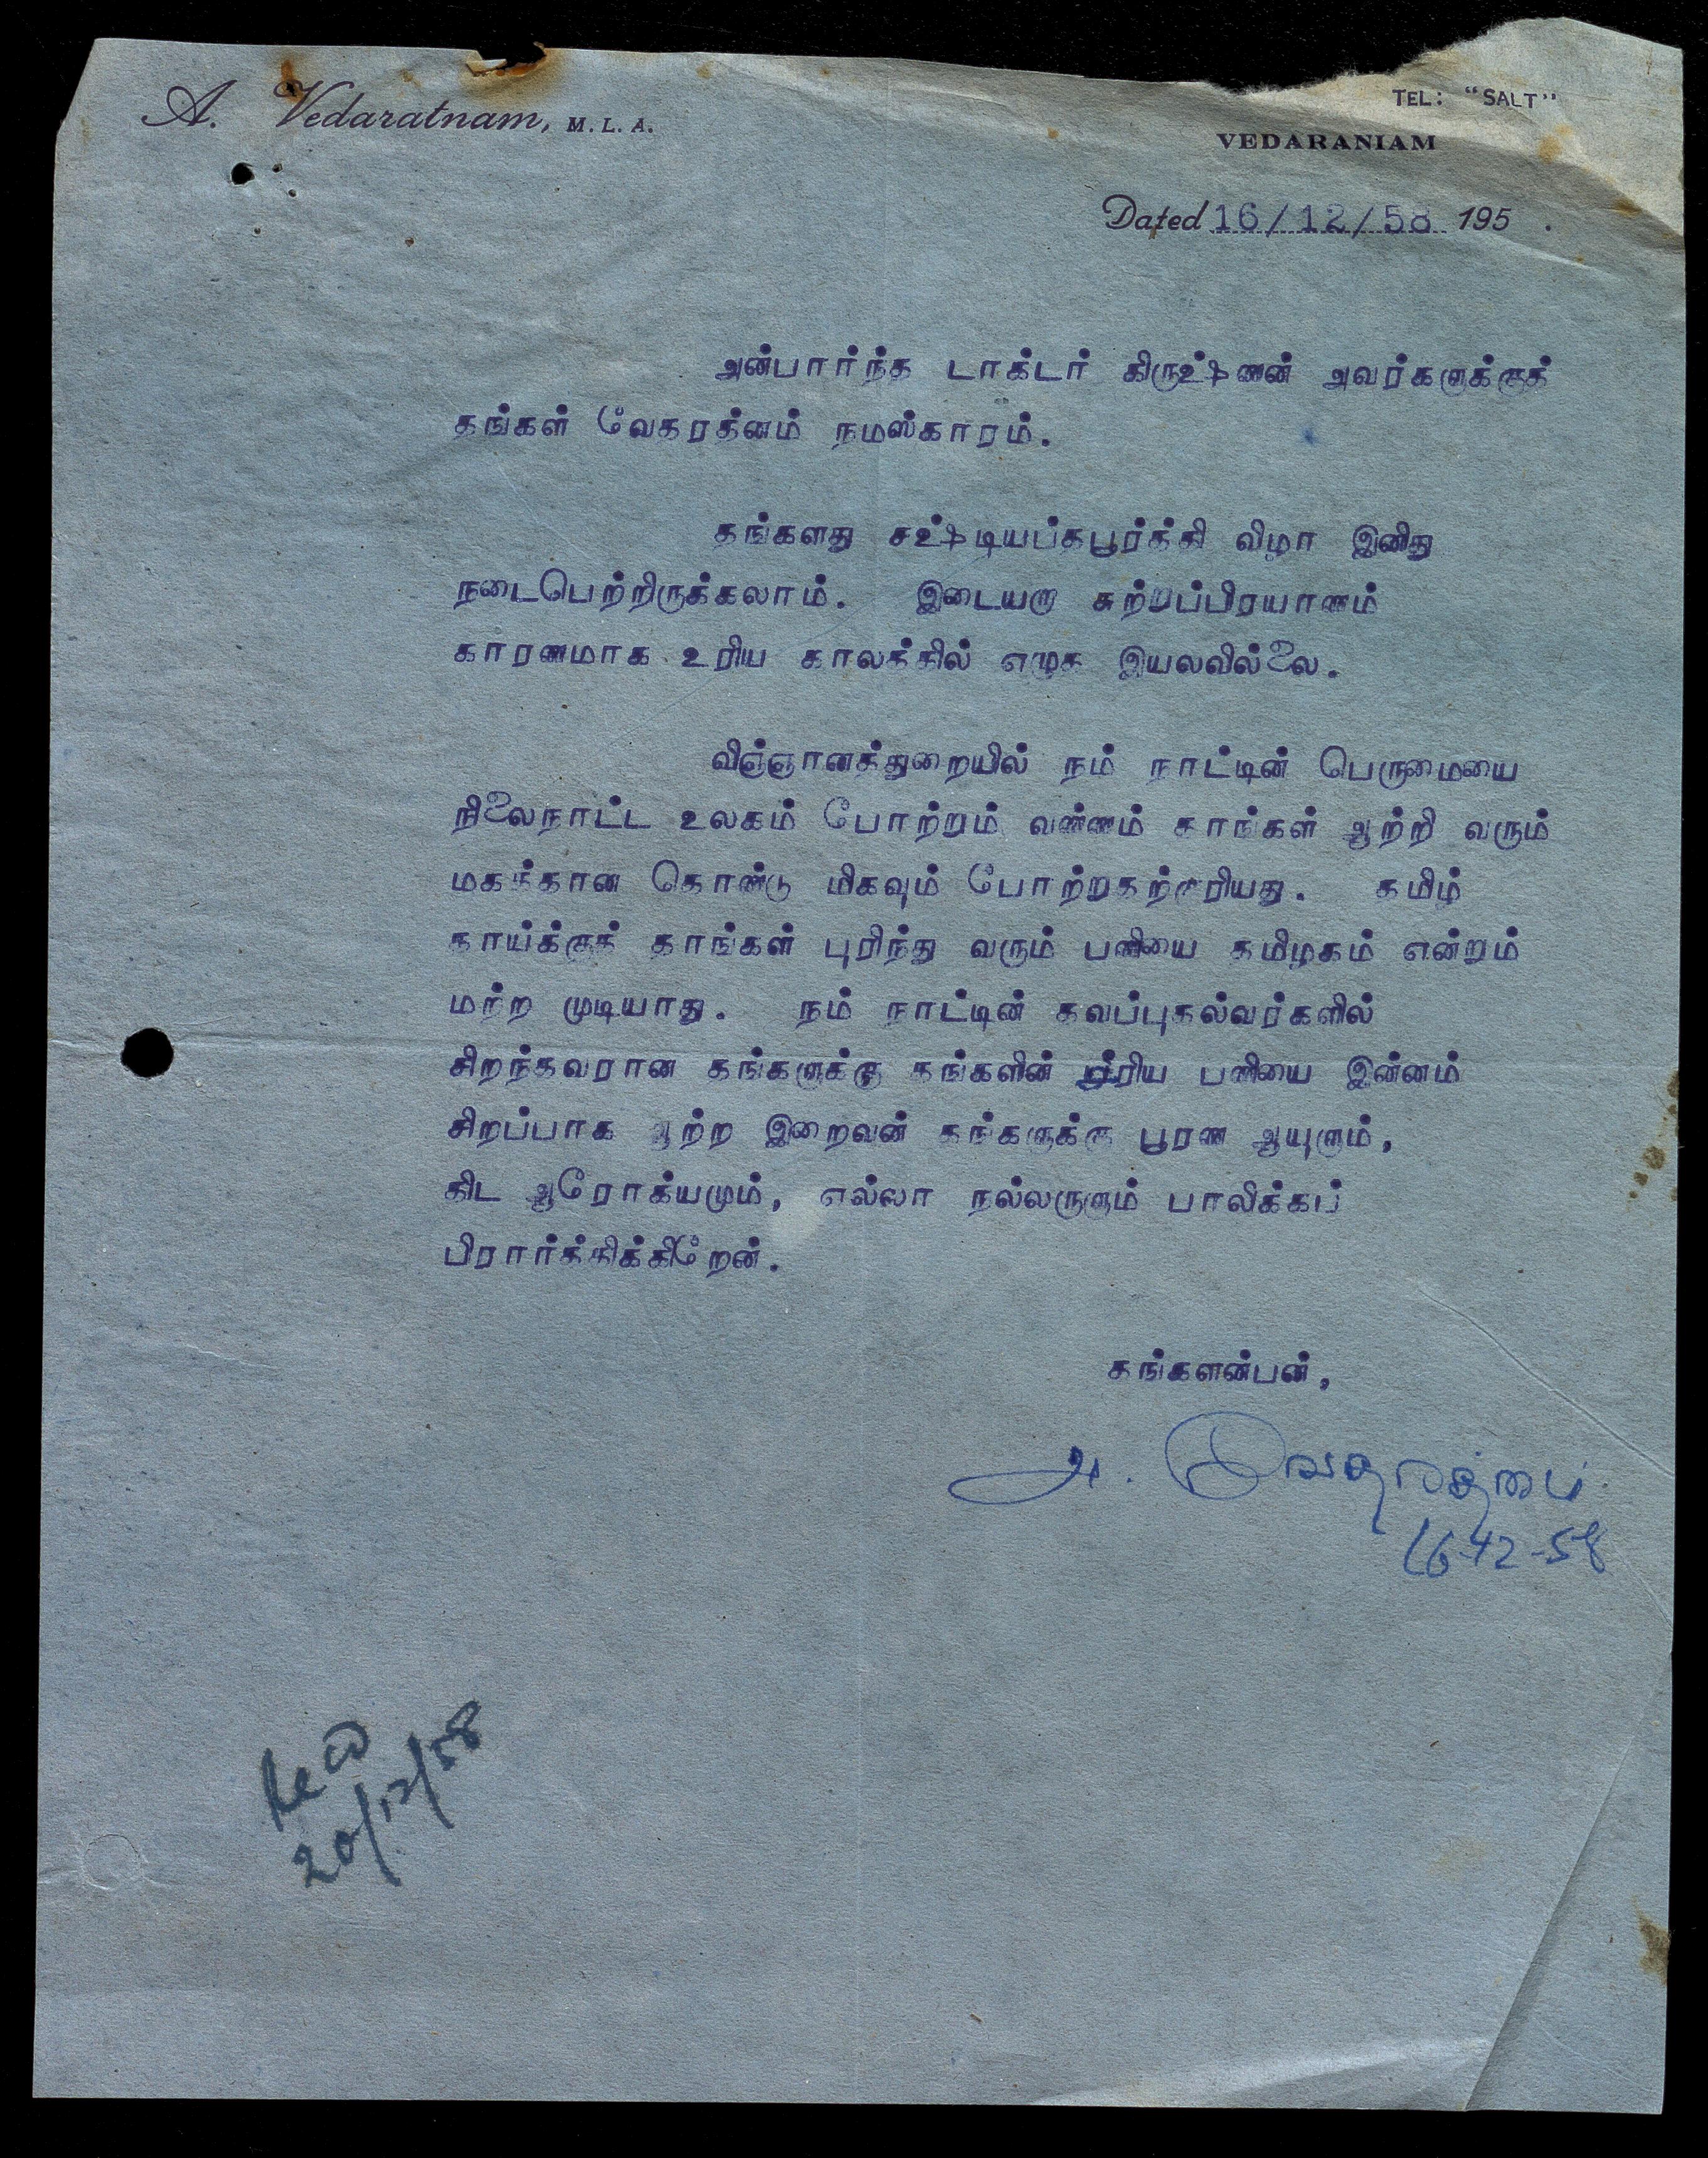 A. Vedaratnam, M. L. A.
TEL: "SALT"
VEDARANIAM
Dated 16/12/58 195 .
அன்பார்ந்த டாக்டர் கிருஷ்ணன் அவர்களுக்குத்
தங்கள் வேதரத்னம் நமஸ்காரம்.
தங்களது சஷ்டியப்தபூர்த்தி விழா இனிது
நடைபெற்றிருக்கலாம். இடையறு சுற்றுப்பிரயாணம்
காரணமாக உரிய காலத்தில் எழுத இயலவில்லை.
விஞ்ஞானத்துறையில் நம் நாட்டின் பெருமையை
நிலைநாட்ட உலகம் போற்றும் வண்ணம் தாங்கள் ஆற்றி வரும்
மகத்தான தொண்டு மிகவும் போற்றுதற்குரியது. தமிழ்
தாய்க்குத் தாங்கள் புரிந்து வரும் பணியை தமிழகம் என்றும்
மற்ற முடியாது. நம் நாட்டின் தவப்புதல்வர்களில்
சிறந்தவரான தங்களுக்கு தங்களின் அரிய பணியை இன்னம்
சிறப்பாக ஆற்ற இறைவன் தங்களுக்கு பூரண ஆயுளும்,
திட ஆரோக்யமும், எல்லா நல்லருளும் பாலிக்கப்
பிரார்த்திக்கிறேன்.
தங்களன்பன்,
அ. வேதரத்னம்
16-12-58
20/12/58